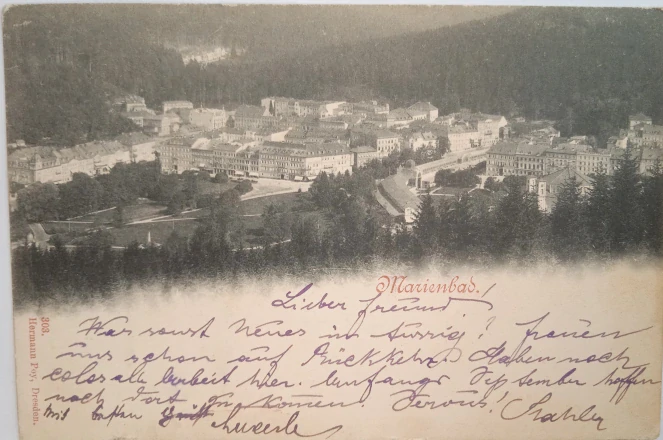 Marienbad.
Lieber Freund!
Was sonst Neues in Aussig? Freuen
uns schon auf Rückkehr. Haben noch
colossale Arbeit hier. Anfangs September hoffen
noch dort zu kommen. Servus!
Mit besten
303.
Hermann Poy, Dresden.